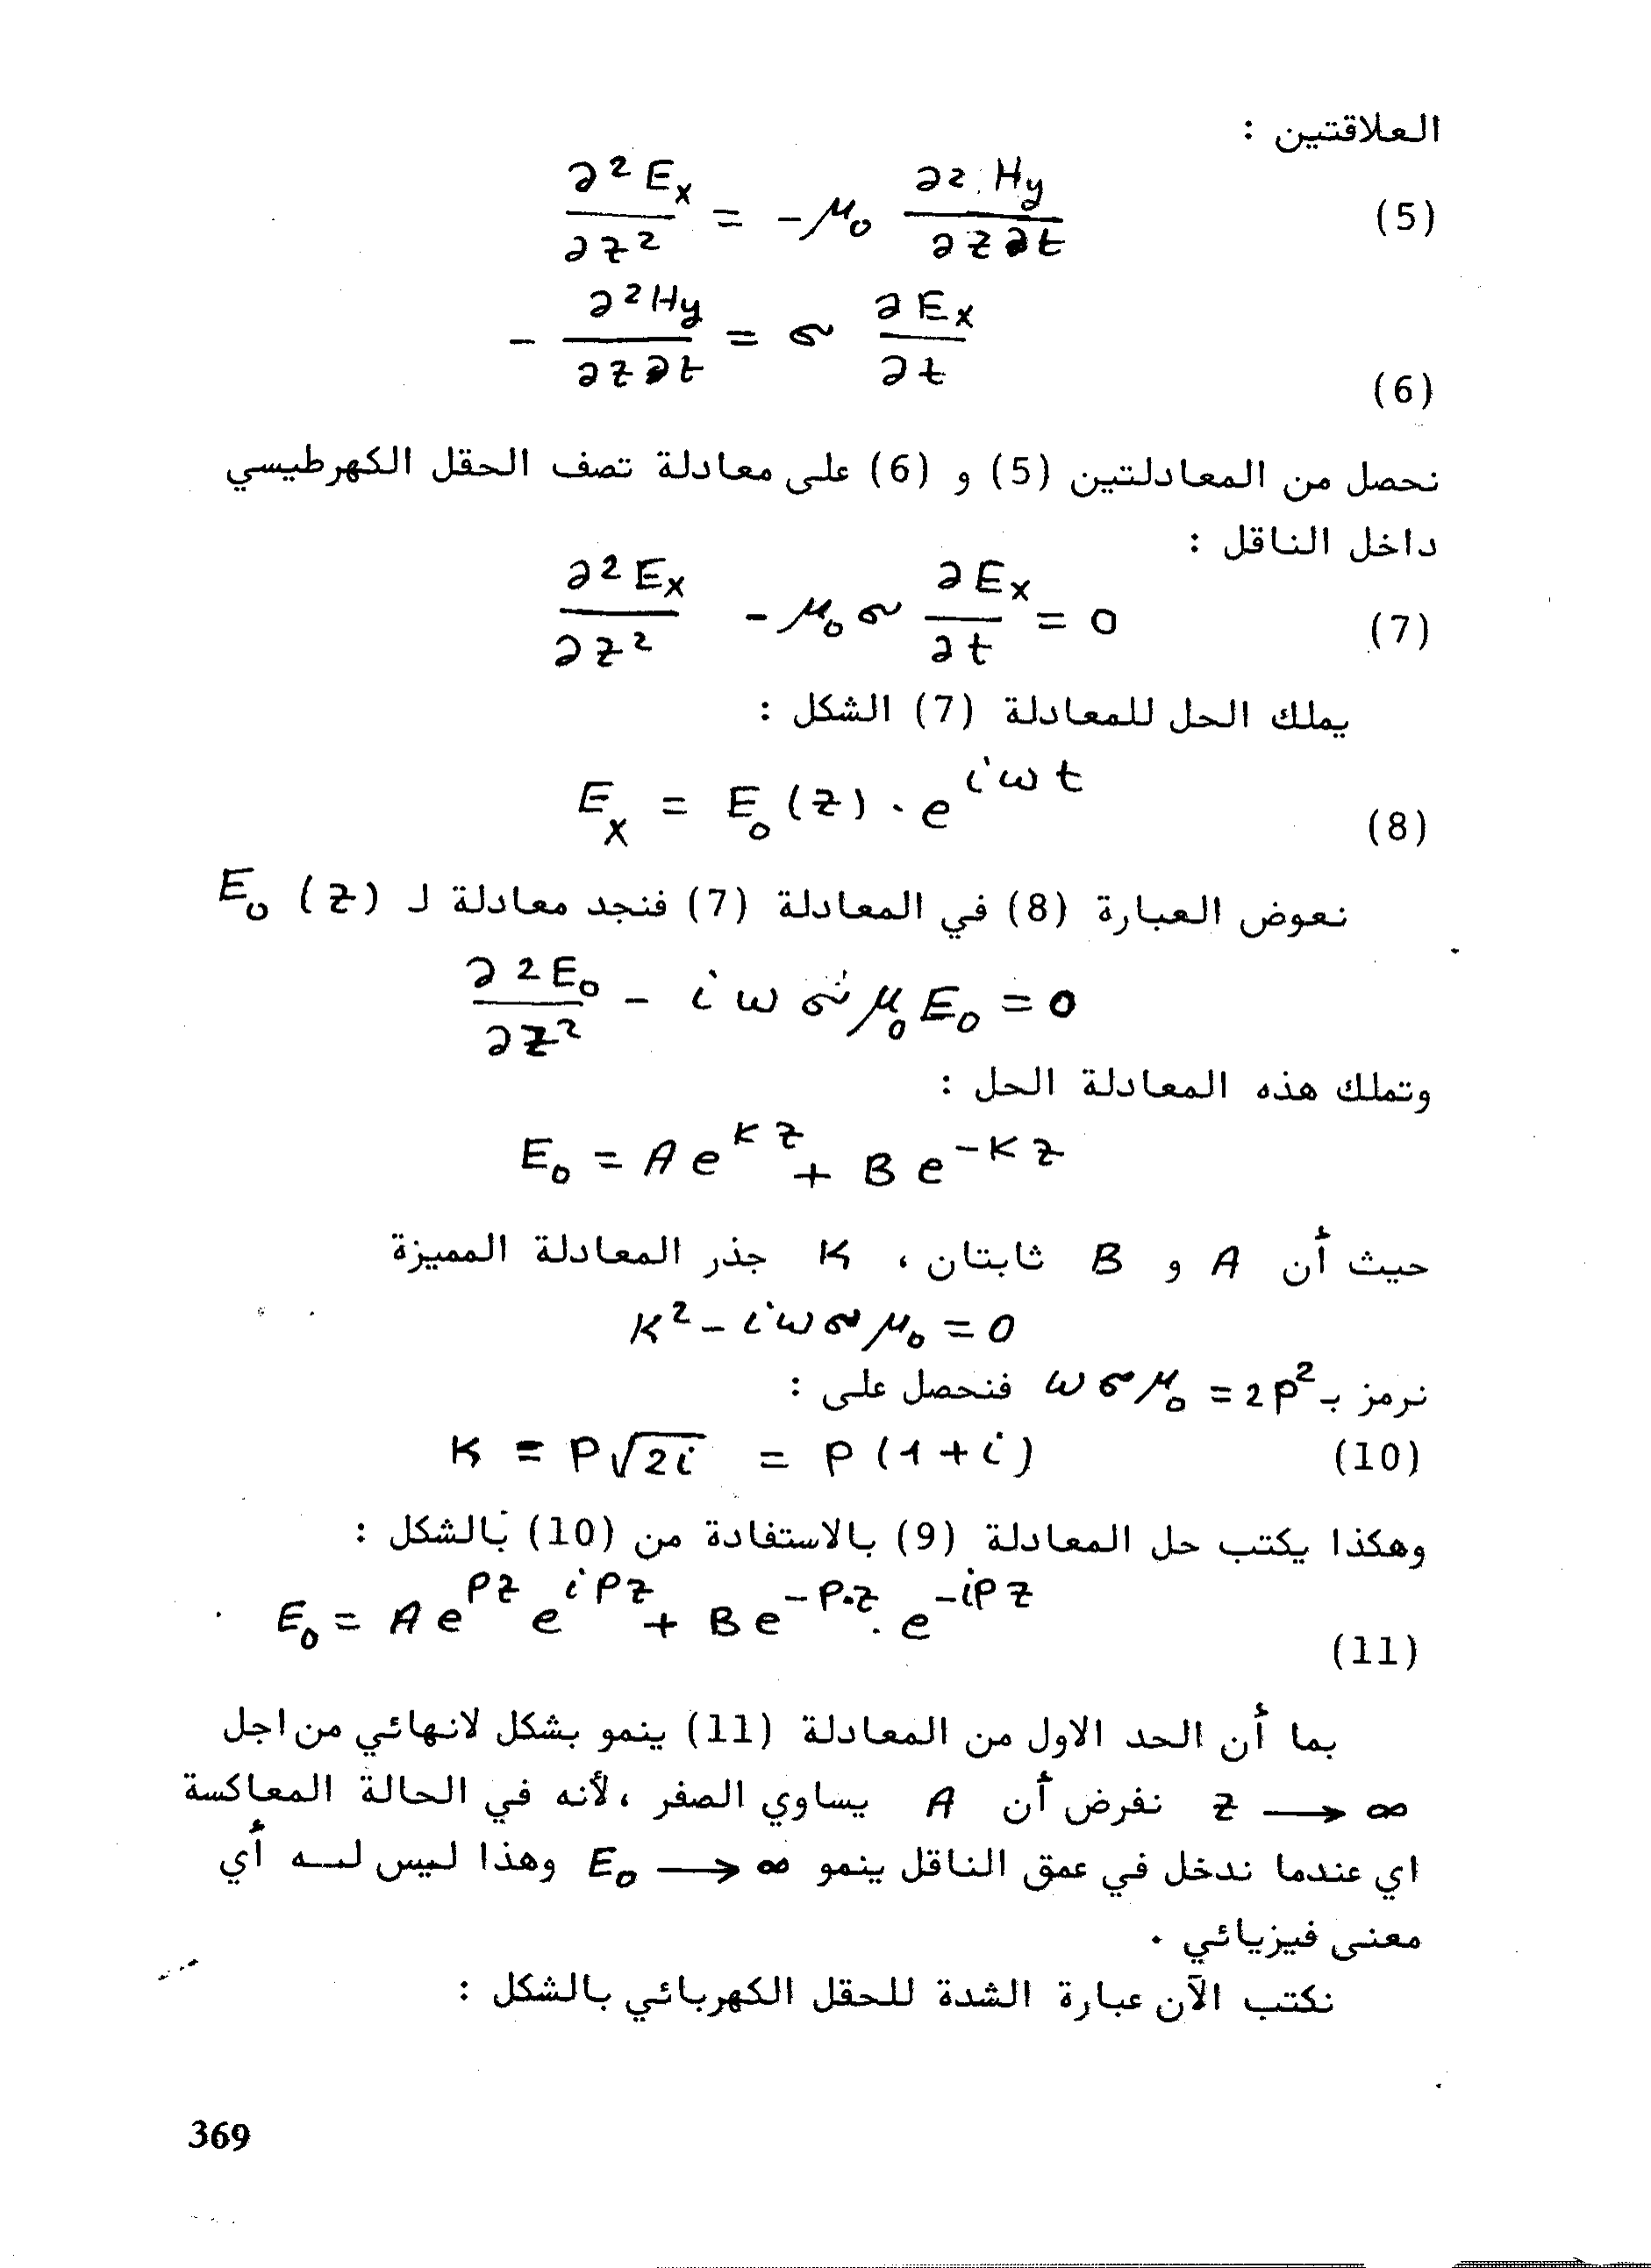 العلاقتين :
∂²Eₓ/∂z² = -μ₀ ∂²Hy/∂z∂t (5)
- ∂²Hy/∂z∂t = σ ∂Eₓ/∂t (6)
نحصل من المعادلتين (5) و (6) على معادلة تصف الحقل الكهرطيسي
داخل الناقل :
∂²Eₓ/∂z² - μ₀σ ∂Eₓ/∂t = 0 (7)
يملك الحل للمعادلة (7) الشكل :
Eₓ = E₀(z) . e^{iωt} (8)
نعوض العبارة (8) في المعادلة (7) فنجد معادلة لـ E₀(z)
∂²E₀/∂z² - iωσμ₀E₀ = 0
وتملك هذه المعادلة الحل :
E₀ = A e^{Kz} + B e^{-Kz}
حيث أن A و B ثابتان ، K جذر المعادلة المميزة
K² - iωσμ₀ = 0
نرمز بـ ωσμ₀ = 2p² فنحصل على :
K = P√2i = P(1+i) (10)
وهكذا يكتب حل المعادلة (9) بالاستفادة من (10) بالشكل :
E₀ = A e^{Pz} e^{iPz} + B e^{-P.z} . e^{-iPz} (11)
بما أن الحد الاول من المعادلة (11) ينمو بشكل لانهائي من اجل
z ⟶ ∞ نفرض أن A يساوي الصفر ، لأنه في الحالة المعاكسة
اي عندما ندخل في عمق الناقل ينمو E₀ ⟶ ∞ وهذا ليس لـه أي
معنى فيزيائي .
نكتب الآن عبارة الشدة للحقل الكهربائي بالشكل :
369